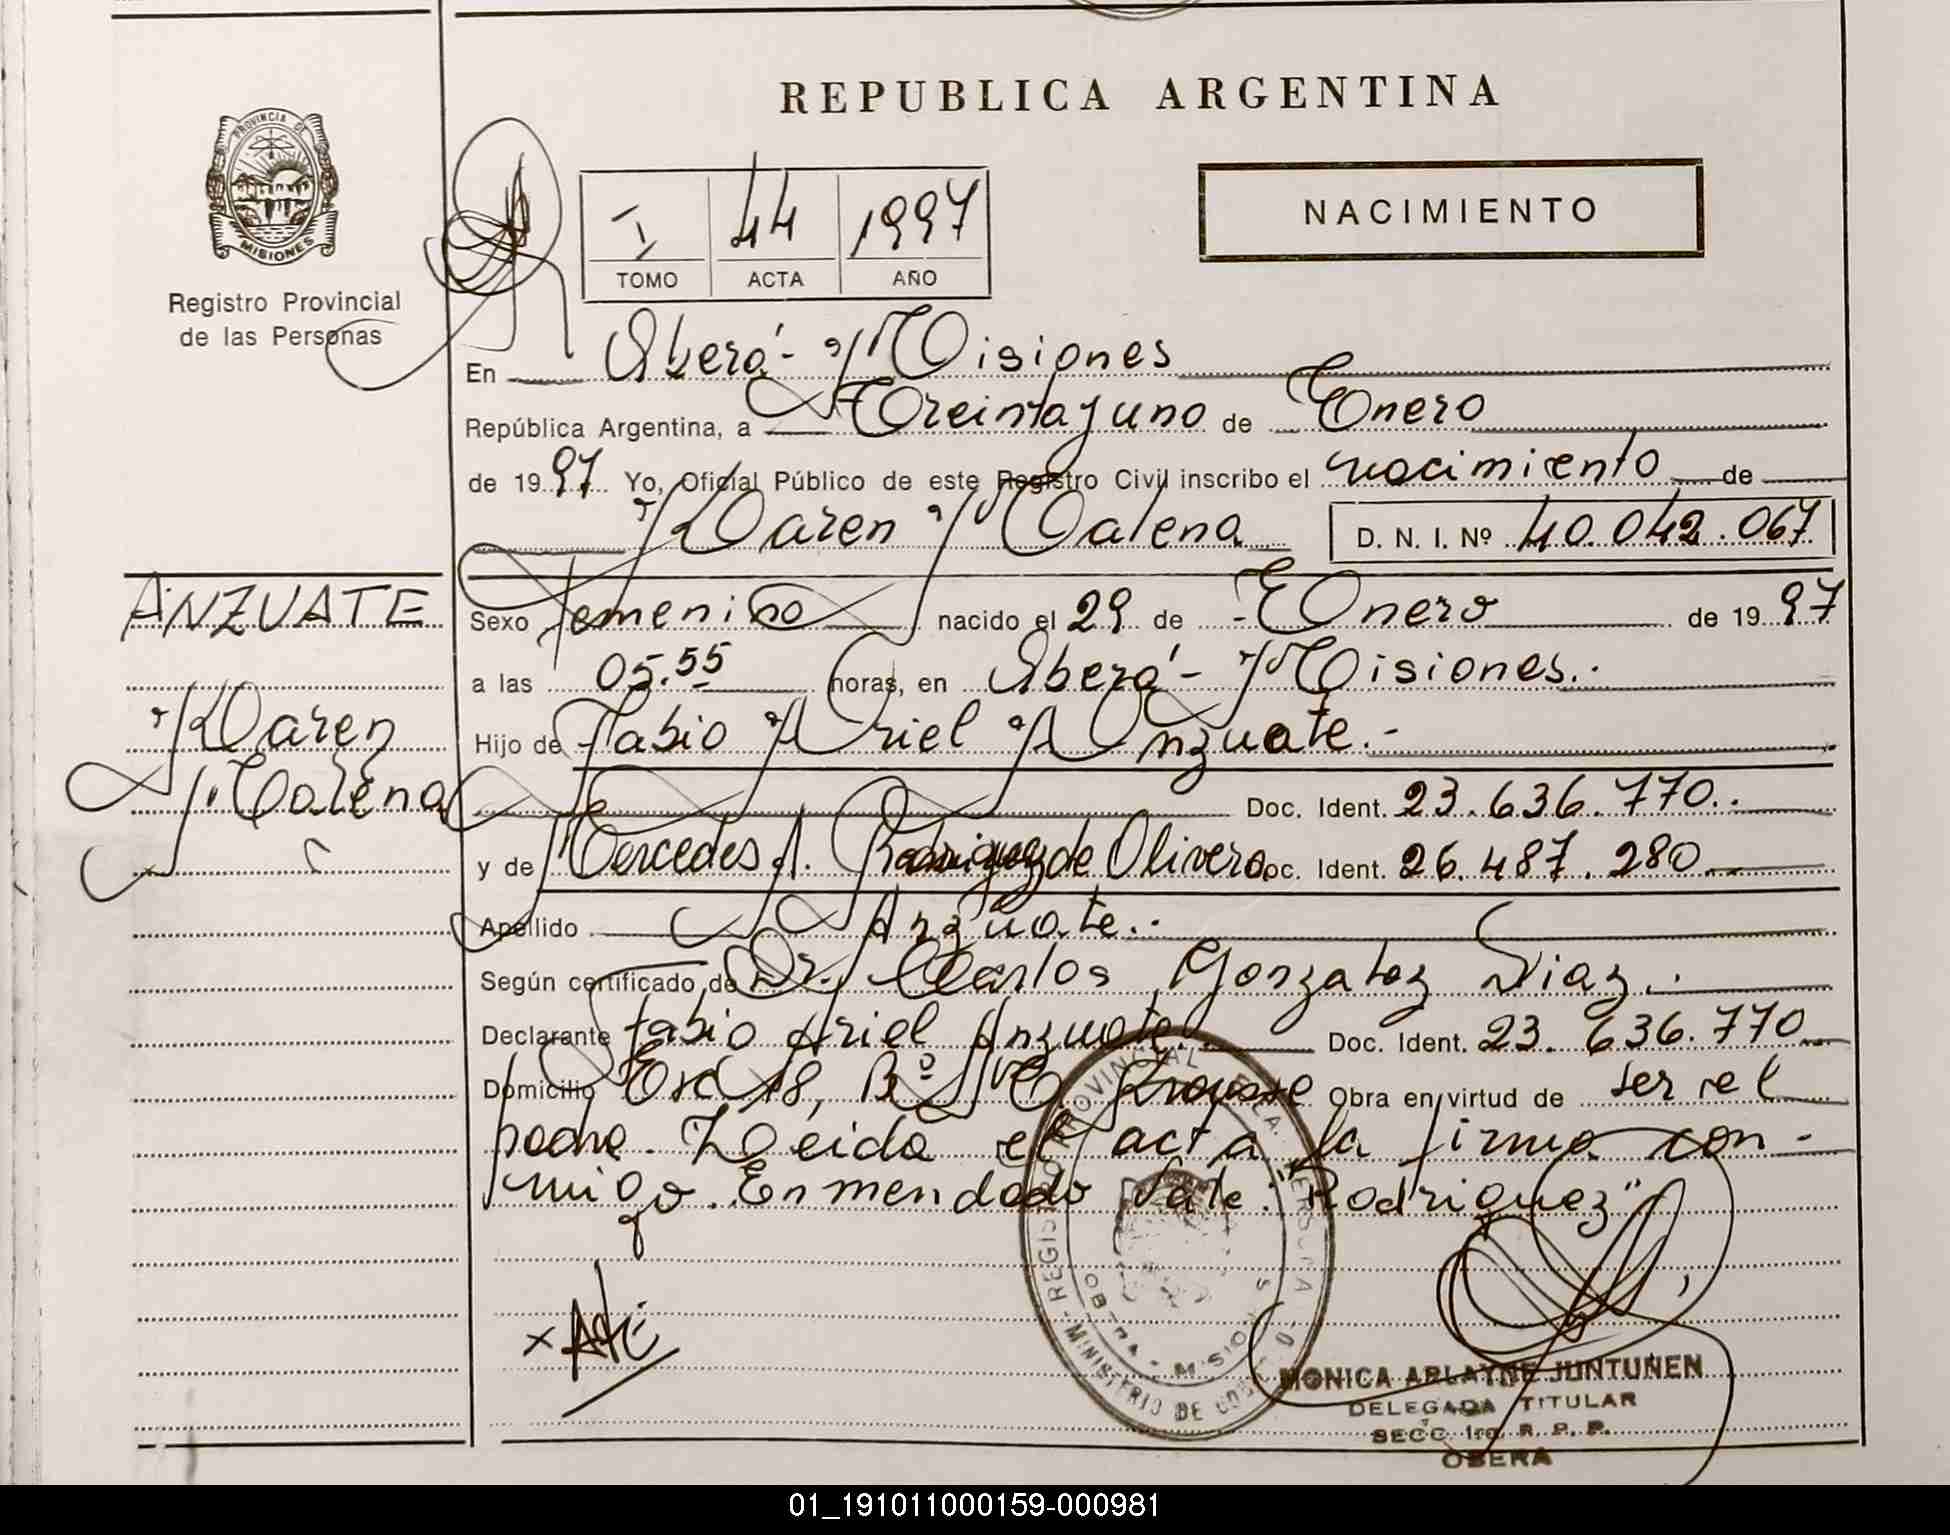 REPUBLICA ARGENTINA
PROVINCIA DE
MISIONES
Registro Provincial
de las Personas
I 44 1997
TOMO ACTA AÑO
NACIMIENTO
En Oberá - Misiones
República Argentina, a Treinta y uno de Enero
de 1997 Yo, Oficial Público de este Registro Civil inscribo el nacimiento de
Karen Malena D. N. I. Nº 40.042.067
ANZUATE
Karen
Malena
Sexo femenino nacido el 29 de Enero de 1997
a las 05.55 horas, en Oberá - Misiones.-
Hijo de Fabio Ariel Anzuate.-
Doc. Ident. 23.636.770.-
y de Mercedes A. Rodriguez de Olivera Doc. Ident. 26.487.280
Apellido Anzuate.-
Según certificado de Dr. Carlos Gonzalez Diaz.-
Declarante Fabio Ariel Anzuate.- Doc. Ident. 23.636.770
Domicilio 18, Bº Krausse Obra en virtud de ser el
padre. Leida el acta la firma con-
migo. Enmendado Vale: "Rodriguez"
REGISTRO PROVINCIAL DE LAS PERSONAS - MINISTERIO DE GOBIERNO
OBERA - MISIONES
MONICA ARLAYNE JUNTUNEN
DELEGADA TITULAR
SECC. 1ra. R. P. P.
OBERA
01_191011000159-000981